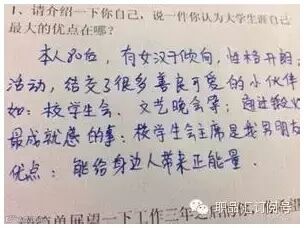 1、请介绍一下你自己，说一件你认为大学生涯自己
最大的优点在哪？
本人80后，有女汉子倾向，性格开朗
活动，结交了很多善良可爱的小伙伴
如：校学生会、文艺晚会等；
最成就感的事：校学生会主席是我男朋友
优点：能给身边人带来正能量。
简单展望一下工作三年之后
职品汇订阅号